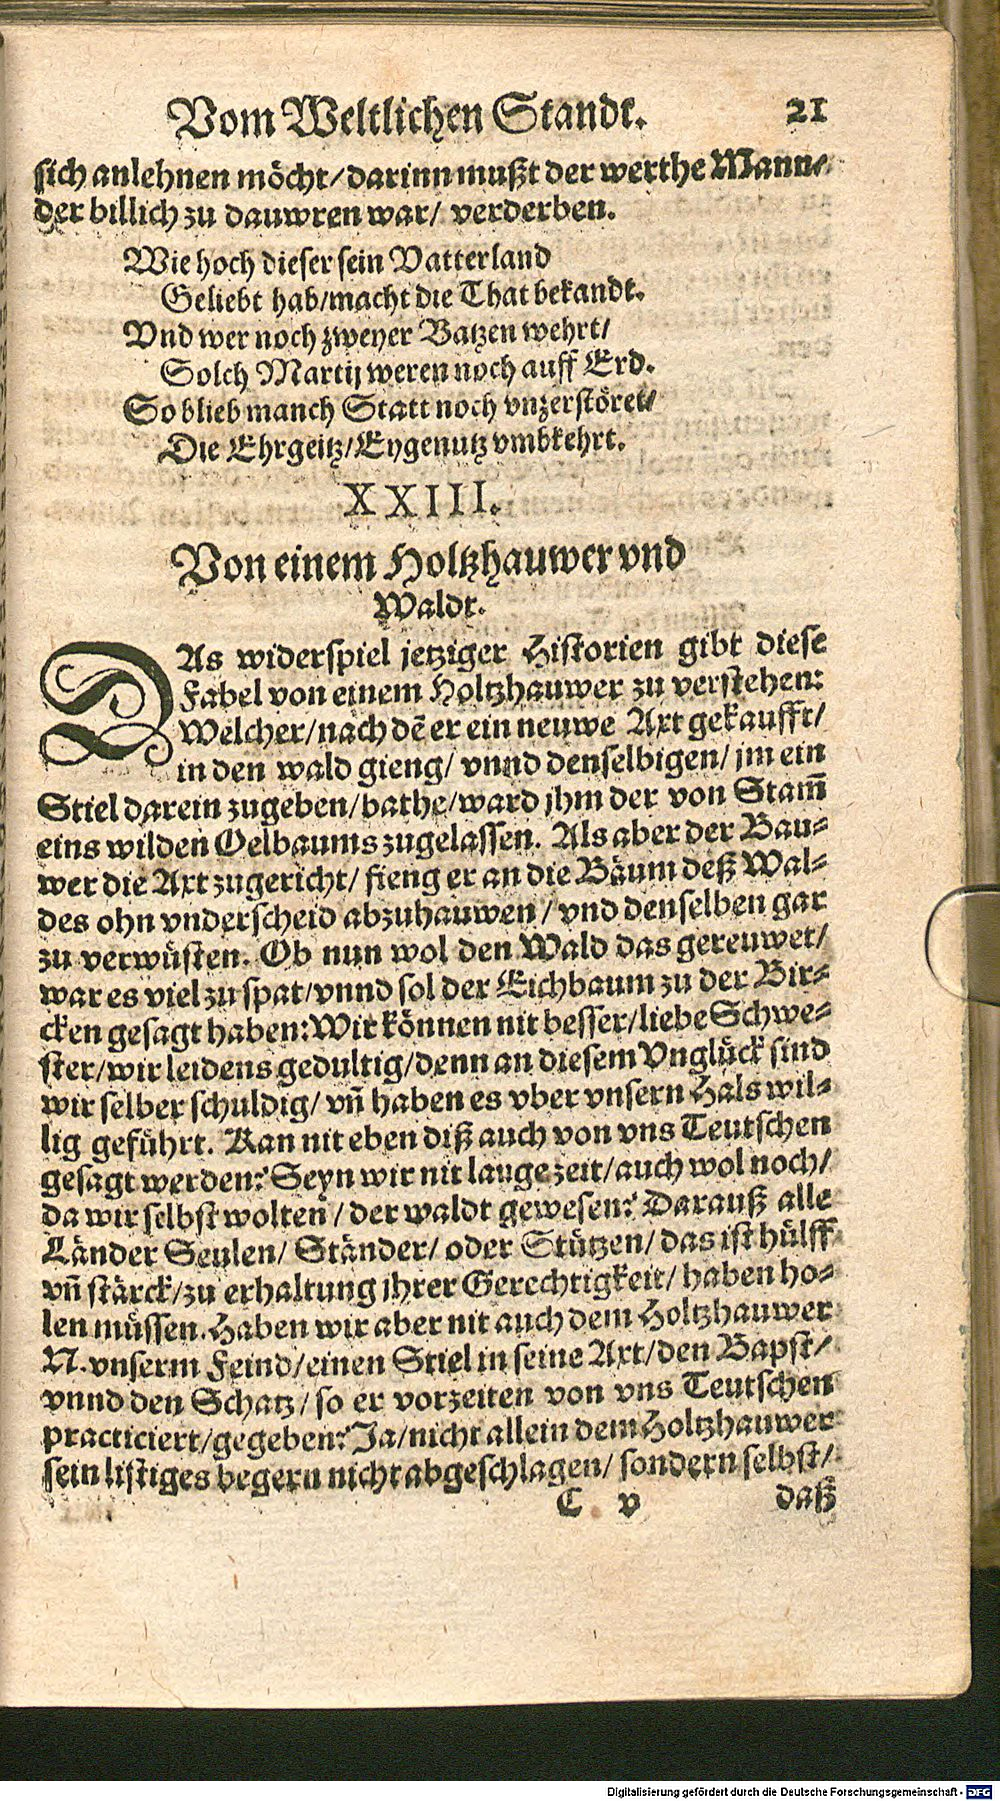 Vom Weltlichen Standt. 21
sich anlehnen möcht/darinn mußt der werthe Mann/
der billich zu dauwren war/ verderben.
Wie hoch dieser sein Vatterland
Geliebt hab/macht die That bekandt.
Vnd wer noch zweyer Batzen wehrt/
Solch Martij weren noch auff Erd.
So blieb manch Statt noch vnzerstöret/
Die Ehrgeitz/Eygenutz vmbkehrt.
XXIII.
Von einem Holtzhauwer vnd
Waldt.
DAs widerspiel jetziger Historien gibt diese
Fabel von einem Holtzhauwer zu verstehen:
Welcher/nach dē er ein neuwe Axt gekaufft/
in den wald gieng/ vnnd denselbigen/ jm ein
Stiel darein zugeben/bathe/ward jhm der von Stam̄
eins wilden Oelbaums zugelassen. Als aber der Bau-
wer die Axt zugericht/ fieng er an die Bäum deß Wal-
des ohn vnderscheid abzuhauwen/ vnd denselben gar
zu verwüsten. Ob nun wol den Wald das gereuwet/
war es viel zu spat/vnnd sol der Eichbaum zu der Bir-
cken gesagt haben: Wir können nit besser/liebe Schwe-
ster/wir leidens gedultig/denn an diesem Vnglück sind
wir selber schuldig/ vn̄ haben es vber vnsern Hals wil-
lig geführt. Kan nit eben diß auch von vns Teutschen
gesagt werden? Seyn wir nit lange zeit/auch wol noch/
da wir selbst wolten/ der waldt gewesen? Darauß alle
Länder Seulen/ Ständer/ oder Stützen/ das ist hülff
vn̄ stärck/zu erhaltung jhrer Gerechtigkeit/ haben ho-
len müssen. Haben wir aber nit auch dem Holtzhauwer
N. vnserm Feind/einen Stiel in seine Axt/den Bapst/
vnnd den Schatz/ so er vorzeiten von vns Teutschen
practiciert/gegeben? Ja/nicht allein dem Holtzhauwer
sein listiges begern nicht abgeschlagen/ sondern selbst/
C v daß
Digitalisierung gefördert durch die Deutsche Forschungsgemeinschaft - DFG